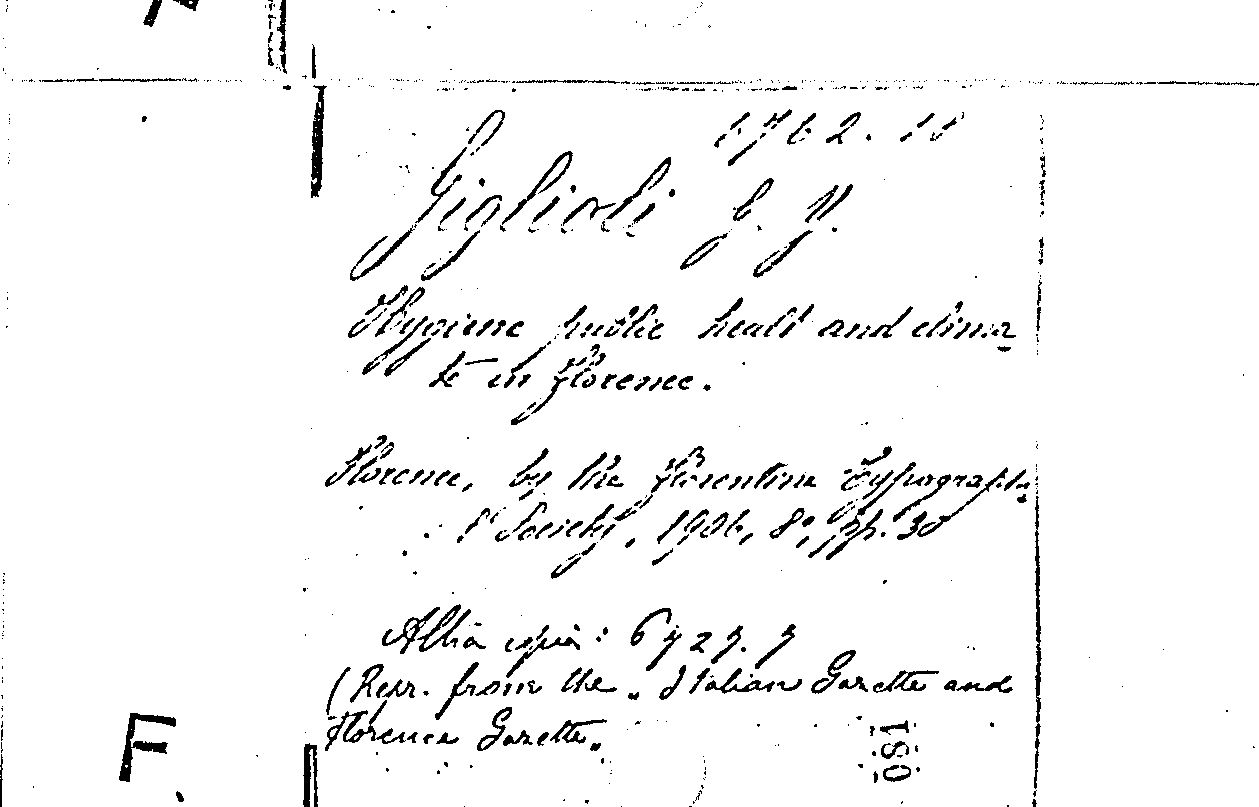 6762. 18
Giglioli G. Y.
Hygiene public healt and clima-
te in Florence.
Florence, by the Florentine Typographi-
Society, 1906, 8°, pp. 30
Altra copia: 6727. 7
(Repr. from the „Italian Gazette and
Florence Gazette„
F
180